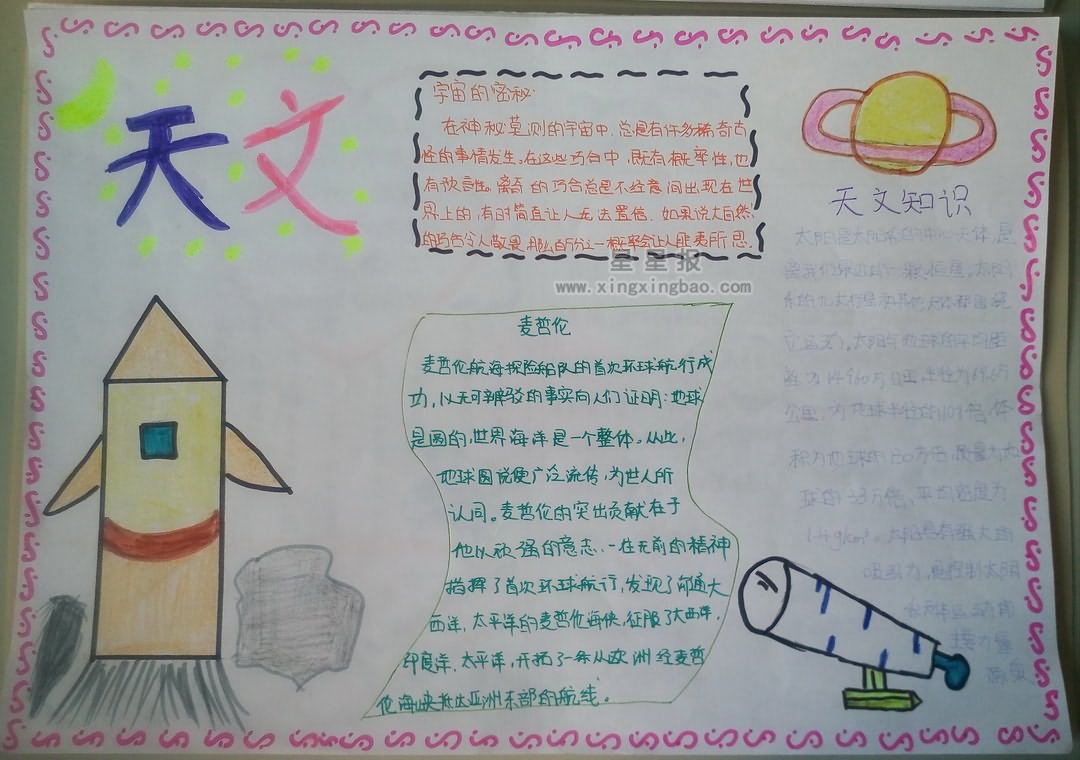 天文
宇宙的密秘
在神秘莫测的宇宙中,总是有许多稀奇古
怪的事情发生。在这些巧合中,既有概率性,也
有预言性。离奇的巧合总是不经意间出现在世
界上的,有时简直让人无法置信.如果说大自然
的巧合令人敬畏,那么百万分之一概率会让人匪夷所思.
星星报
www.xingxingbao.com
麦哲伦
麦哲伦航海探险船队的首次环球航行成
功,以无可辨驳的事实向人们证明:地球
是圆的,世界海洋是一个整体。从此,
地球圆说便广泛流传,为世人所
认同。麦哲伦的突出贡献在于
他以顽强的意志、一往无前的精神
指挥了首次环球航行,发现了沟通大
西洋,太平洋的麦哲伦海侠,征服了大西洋,
印度洋.太平洋,开拓了一条从欧洲经麦哲
伦海峡抵达亚洲东部的航线。
天文知识
太阳是太阳系的中心天体,是
离我们最近的一颗恒星。太阳
系的九大行星和其他天体都围绕
它运动。太阳与地球的平均距
离为14960万公里,半径为69.6万
公里,为地球半径的109倍,体
积为地球的130万倍,质量为地
球的33万倍,平均密度为
吸引力,